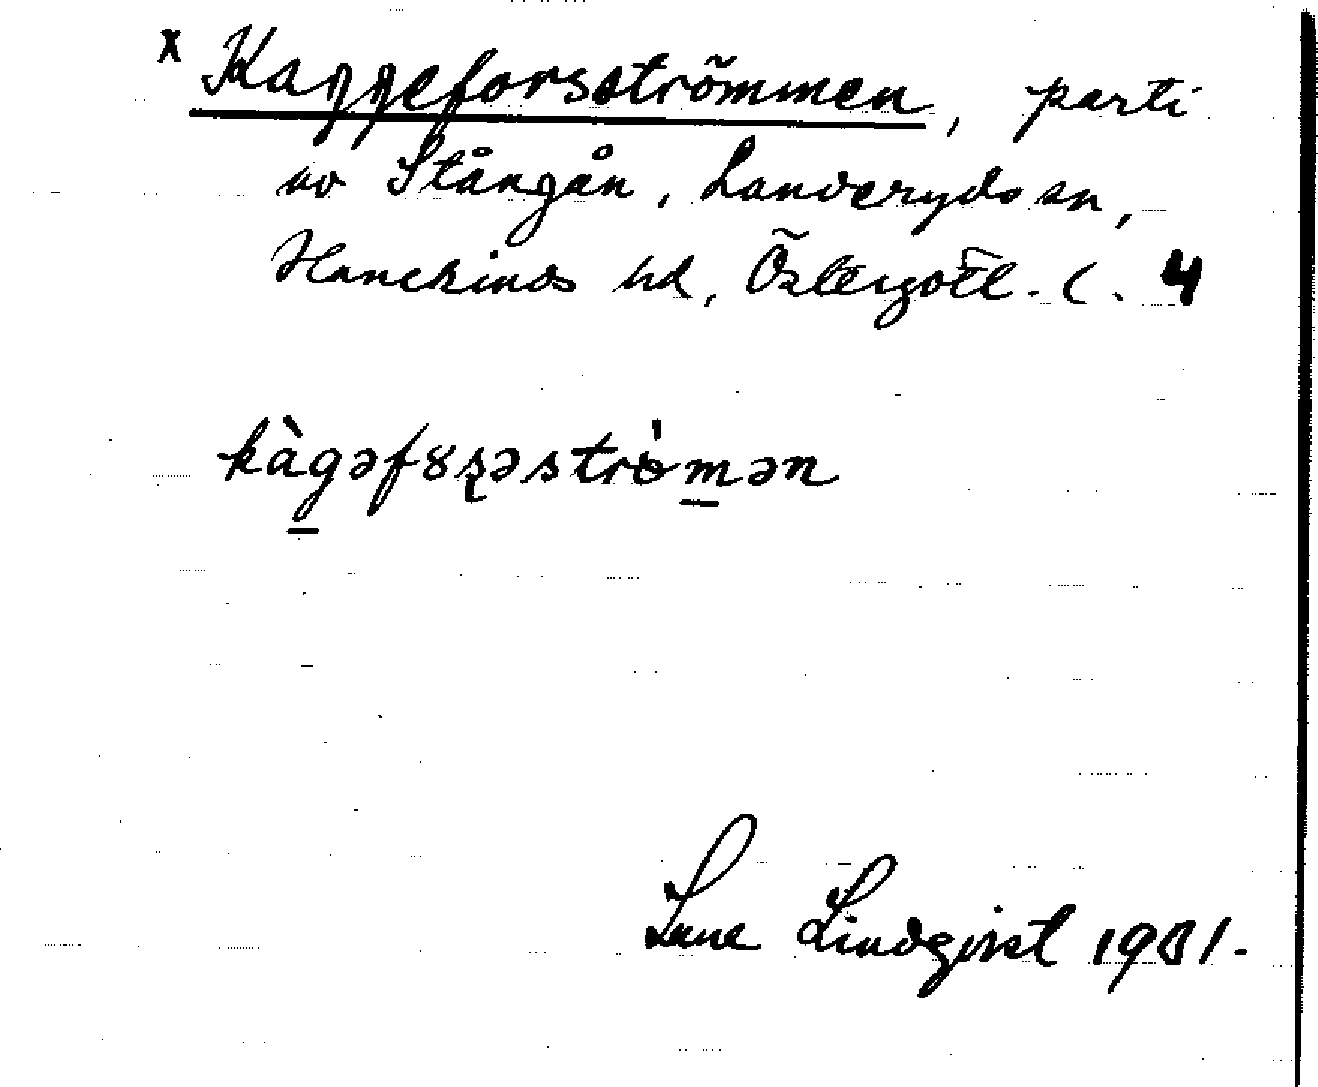 x Kaggeforsströmmen, parti
av Stångån, Landeryds sn,
Hanekinds hd, Östergötl. l. 4
kàgəfȣʂəströ̀mən
Sune Lindqvist 1931.